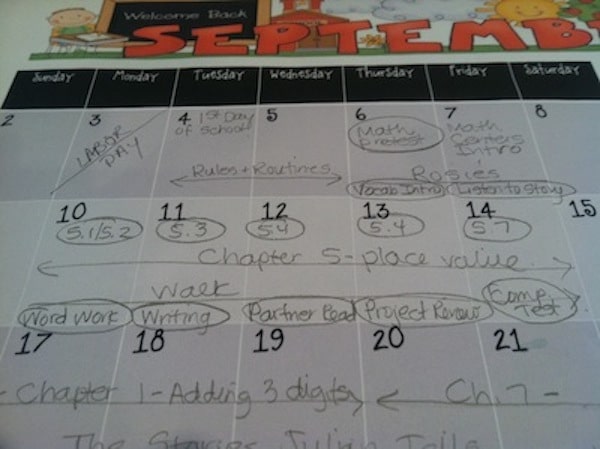 Welcome Back
SEPTEMB
Sunday Monday Tuesday Wednesday Thursday Friday Saturday
2 3 4 1st Day 5 6 7 8
of school
LABOR
DAY
Math
pretest
Math
Centers
Intro
Rules + Routines
Rosies
Vocab Intro Listen to Story
10 11 12 13 14 15
5.1/5.2 5.3 5.4 5.4 5.7
Chapter 5 - place value
Walk
Word Work Writing Partner Read Project Review Comp.
Test
17 18 19 20 21
- Chapter 1 - Adding 3 digits Ch. 7 -
The Stories Julian Tells